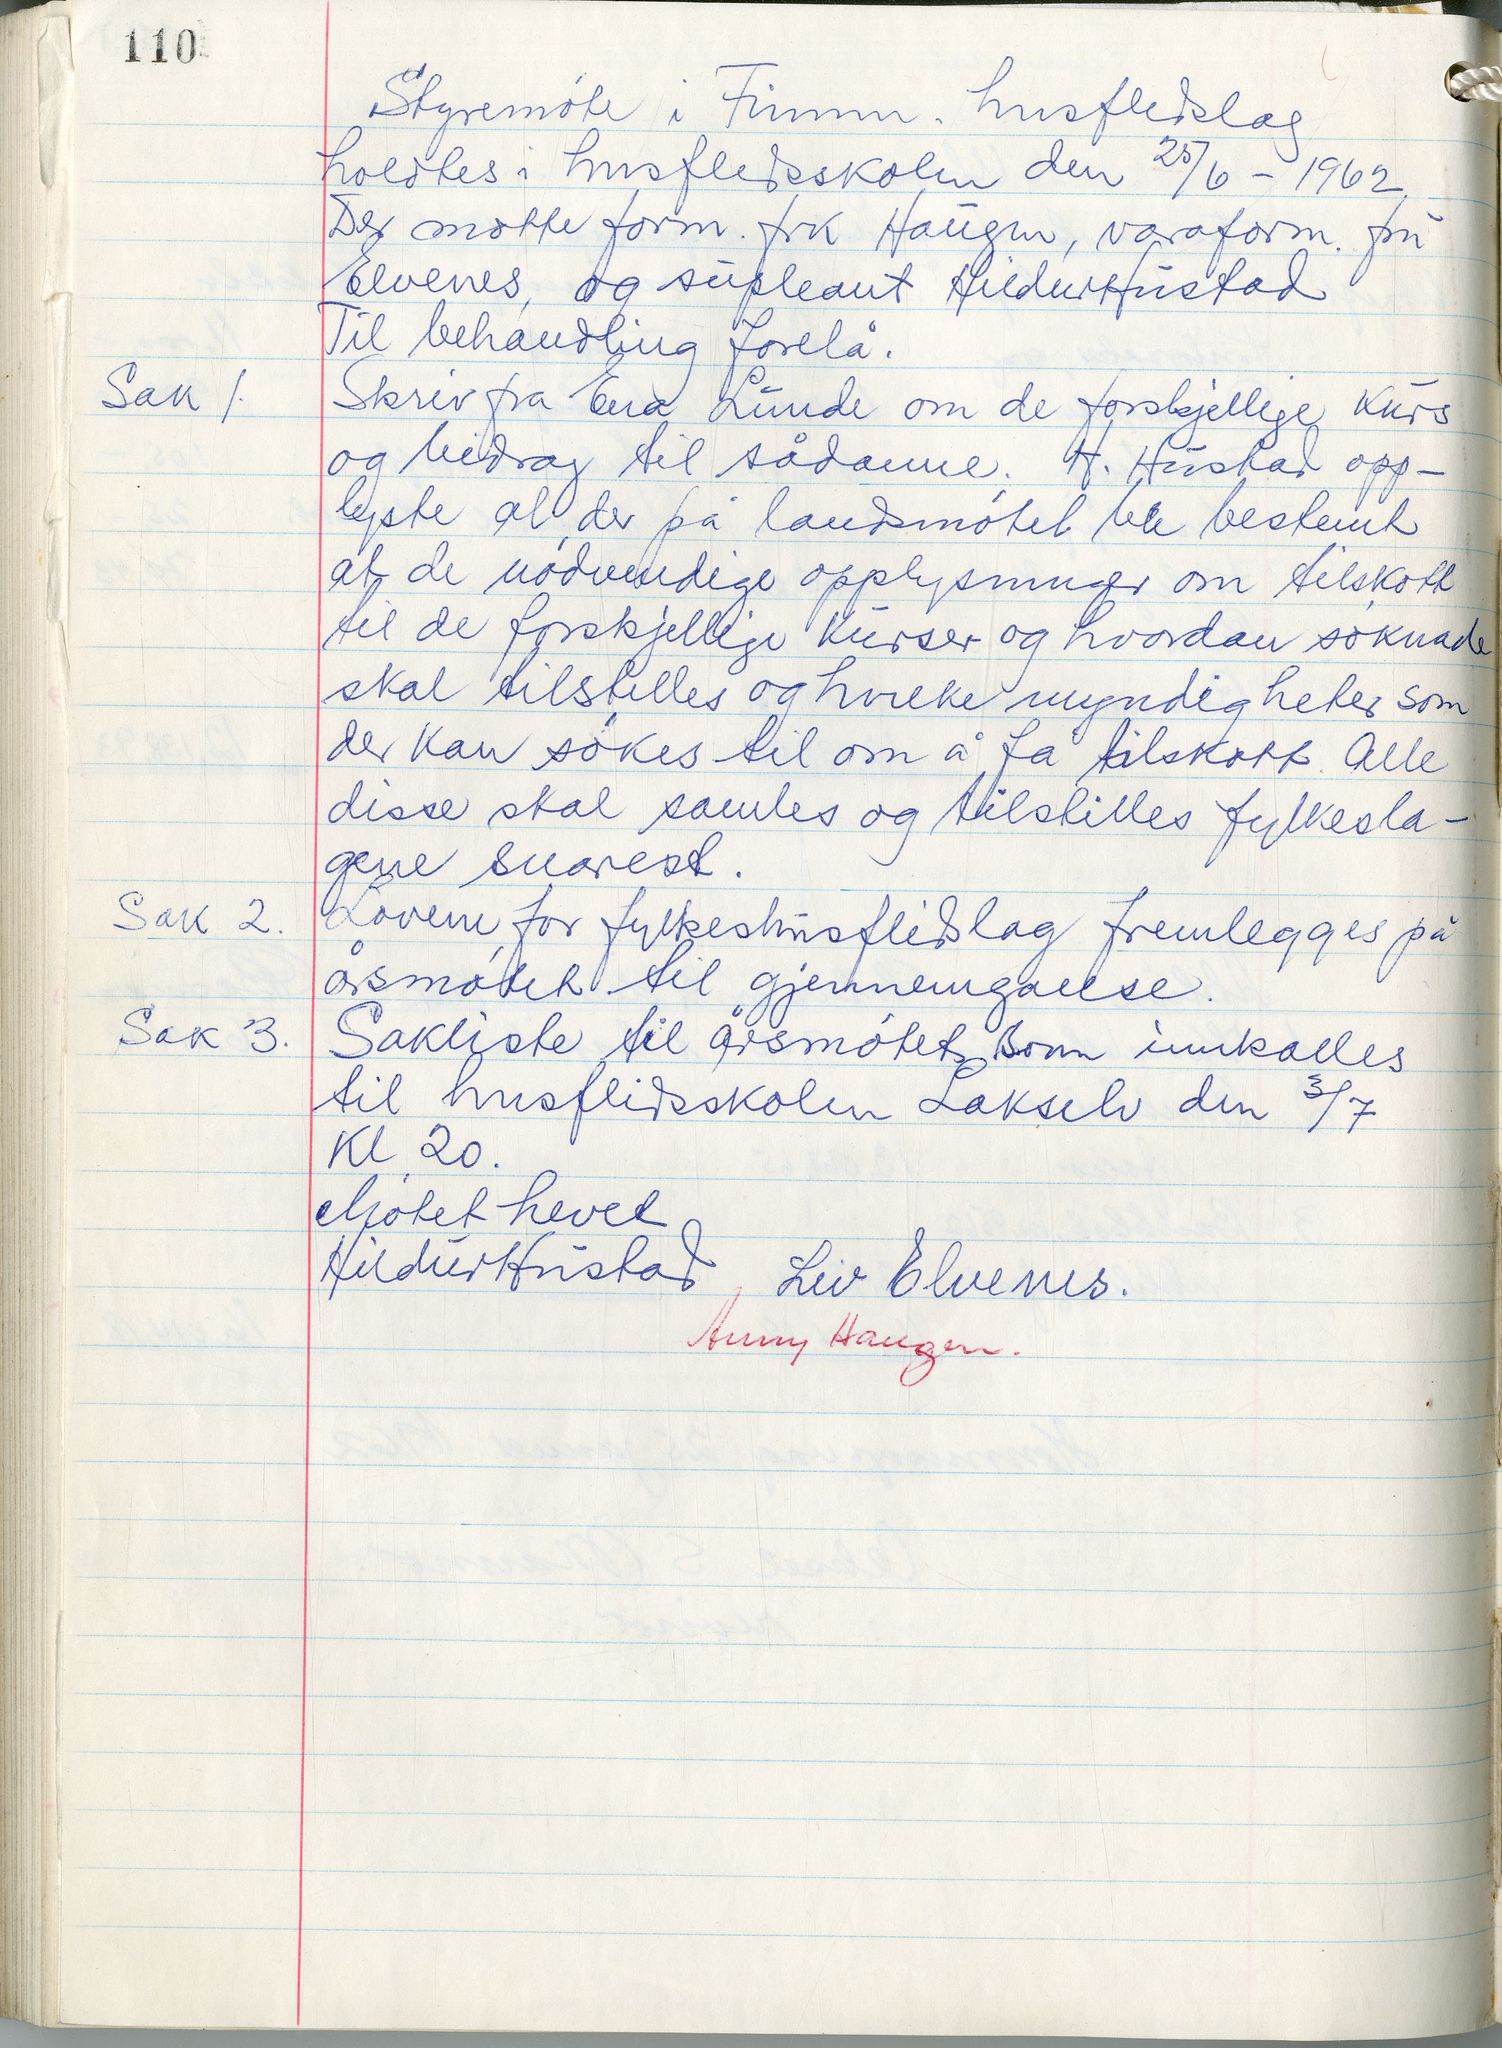 110
Styremöte i Finnm. husflidslag
holdtes i husflidsskolen den 25/6 - 1962.
Der møtte form. frk Haugen, varaform. fru
Elvenes, og supleant Hildur Hustad
Til behandling forelå.
Sak 1. Skriv fra Ena Lunde om de forskjellige Kurs
og bidrag til sådanne. H. Hustad opp-
lyste at der på landsmötet ble bestemt
at de nödvendige opplysninger om tilskott
til de forskjellige Kurser og hvordan söknade
skal tilstilles og hvilke myndigheter som
der kan sökes til om å få tilskott. Alle
disse skal samles og tilstilles fylkesla-
gene snarest.
Sak 2. Lovene for fylkeshusflidslag fremlegges på
årsmötet til gjennemgåelse.
Sak 3. Sakliste til årsmötet som innkalles
til husflidsskolen Lakselv den 3/7
Kl 20.
Mötet hevet
Hildur Hustad Liv Elvenes.
Anny Haugen.